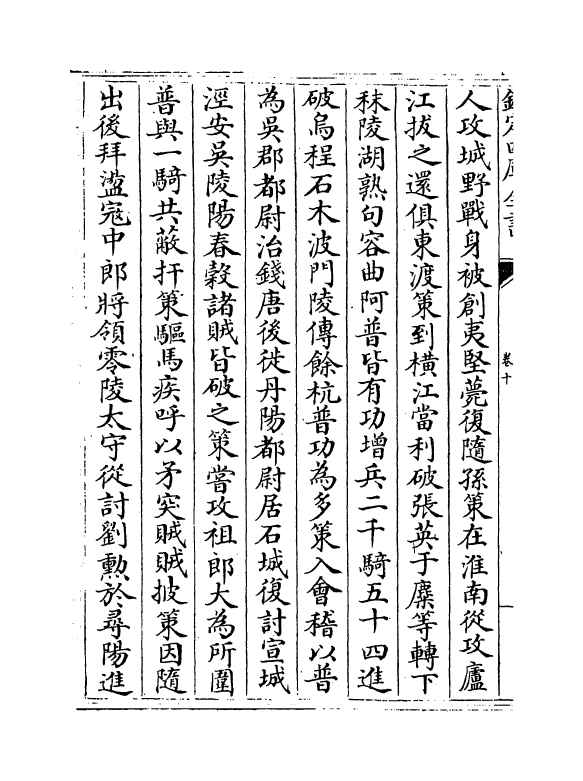 欽定四庫全書
卷十
人攻城野戰身被創夷堅薨復隨孫策在淮南從攻廬
江拔之還俱東渡策到橫江當利破張英于麋等轉下
秣陵湖熟句容曲阿普皆有功增兵二千騎五十四進
破烏程石木波門陵傳餘杭普功為多策入會稽以普
為吳郡都尉治錢唐後徙丹陽都尉居石城復討宣城
涇安吳陵陽春穀諸賊皆破之策嘗攻祖郎大為所圍
普與一騎共蔽扞策驅馬疾呼以矛突賊賊披策因隨
出後拜盪寇中郎將領零陵太守從討劉勲於尋陽進